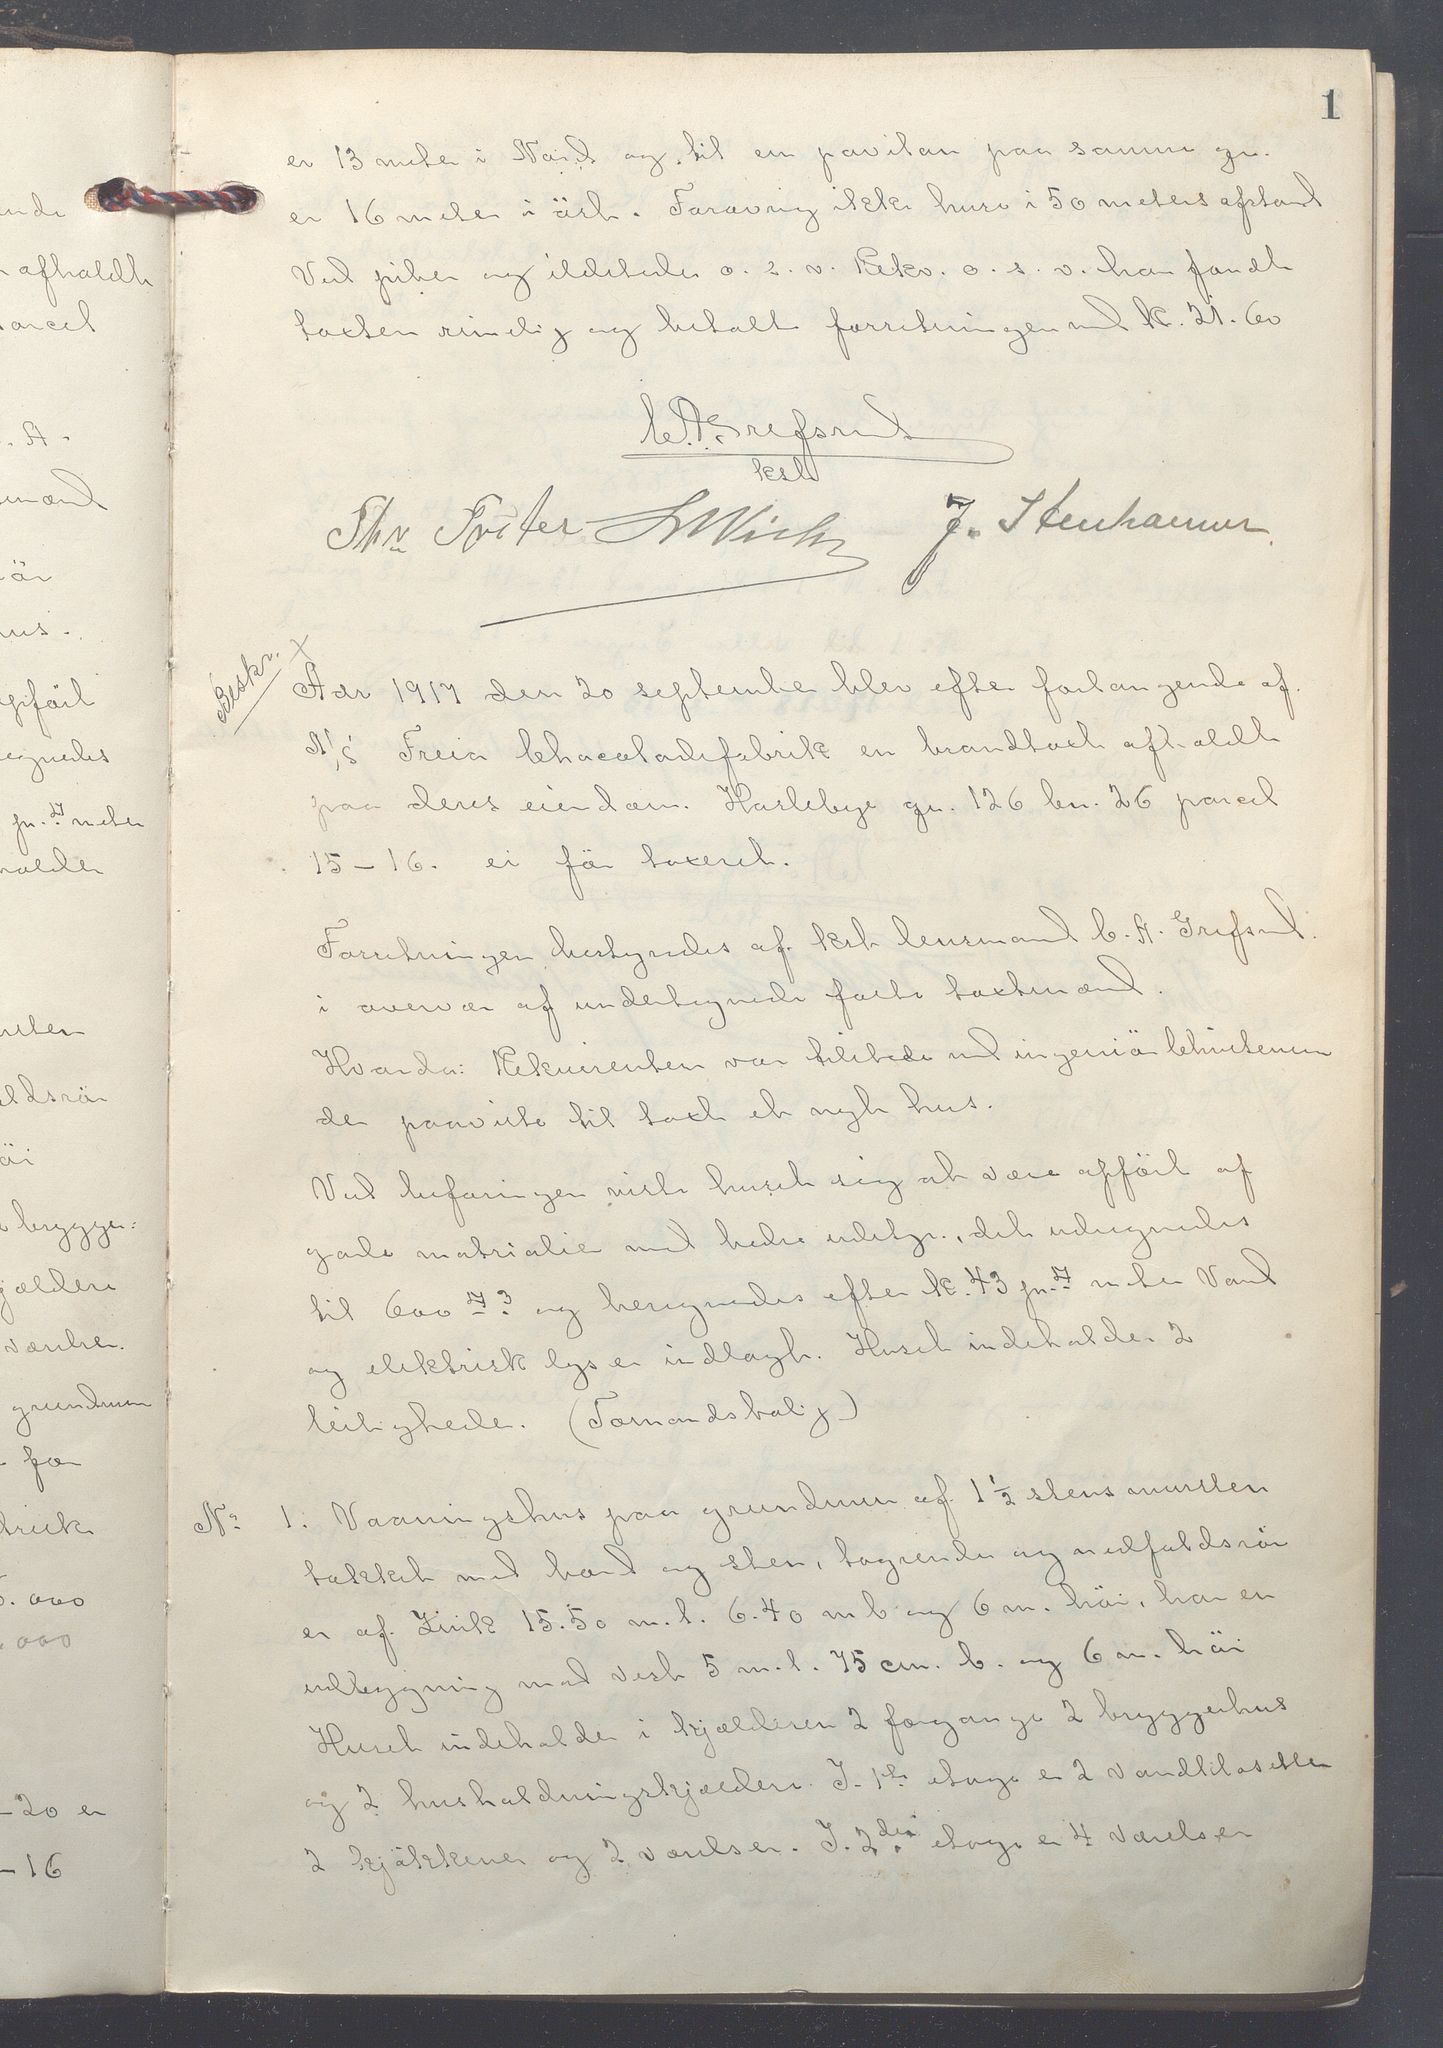 1
er 13 meter i Nord og til en pavilon paa samme gr.
er 16 meter i öst. Forövrig ikke huse i 50 meters afstand
Ved piber og ildsteder o. s. v. Rekv. o. s. v. han fandt
taxten rimelig og betalt forretningen med kr. 21.60
C. A. Grefsrud
kst
Thv J. Stenhammer
Beskr. X
Aar 1917 den 20 september blev efter forlangende af
A/S Freia Chocoladefabrik en brandtaxt afholdt
paa deres eiendom. Haslebye gr. 126 bn. 26 parcel
15-16. ei för taxeret.
Forretningen bestyredes af kst lensmand C. A. Grefsrud
i overvær af undertegnede faste taxtmænd.
Hvorda: Rekvirenten var tilstede ved ingeniör
der paaviste til taxt et nyt hus.
Ved befaringen viste huset sig at være opfört af
gode matrialier med bedre udstyr, det udregnedes
til 600 m³ og beregnedes efter kr. 43 pr. m meter Vand
og elektrisk lys er indlagt. Huset indeholder 2
leiligheder. (Formandsbolig)
No 1. Vaaningshus paa grundmur af 1 1/2 stens mursten
tækket med bord og sten, tagrender og nedfaldsrör
er af Zink 15.50 m. l. 6.40 m b og 6 m. höi, har en
udbygning mod vest 5 m. l. 75 cm. b. og 6 m. höi
Huset indeholder i kjælderen 2 forgange 2 bryggerhus
og 2 husholdningskjældere. I 1ste etage er 2 vandklosetter
2 kjökkener og 2 værelser. I. 2den etage er 4 værelser
ende
afholdt
parcel
. A.
mænd
ör
hus.
opfört
egnedes
pr. m meter
holder
ldsrör
öi
brygger=
jældere
værelser.
grundmur
for
5.000
.000
-20 er
-16